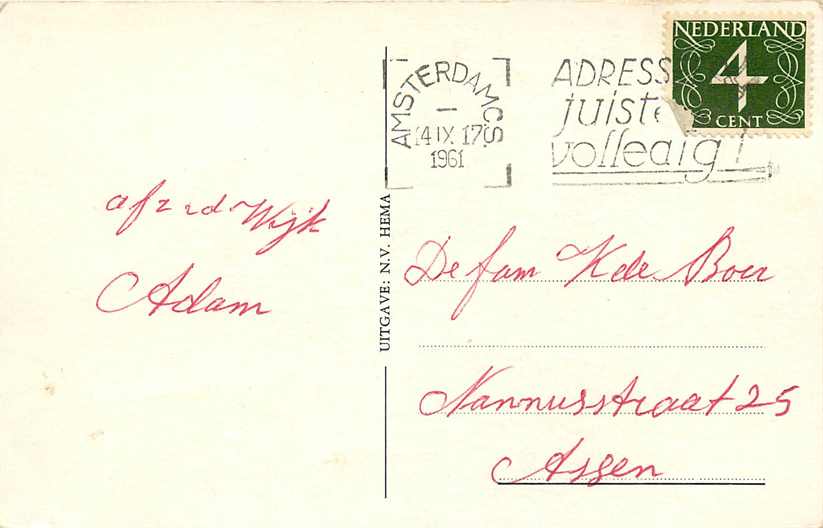 NEDERLAND
4
CENT
AMSTERDAM C.S.
14 IX 17
1961
ADRESS
juiste
volledig!
afz v.d. Wijk
Adam
UITGAVE: N.V. HEMA
De fam K de Boer
Nannusstraat 25
Assen